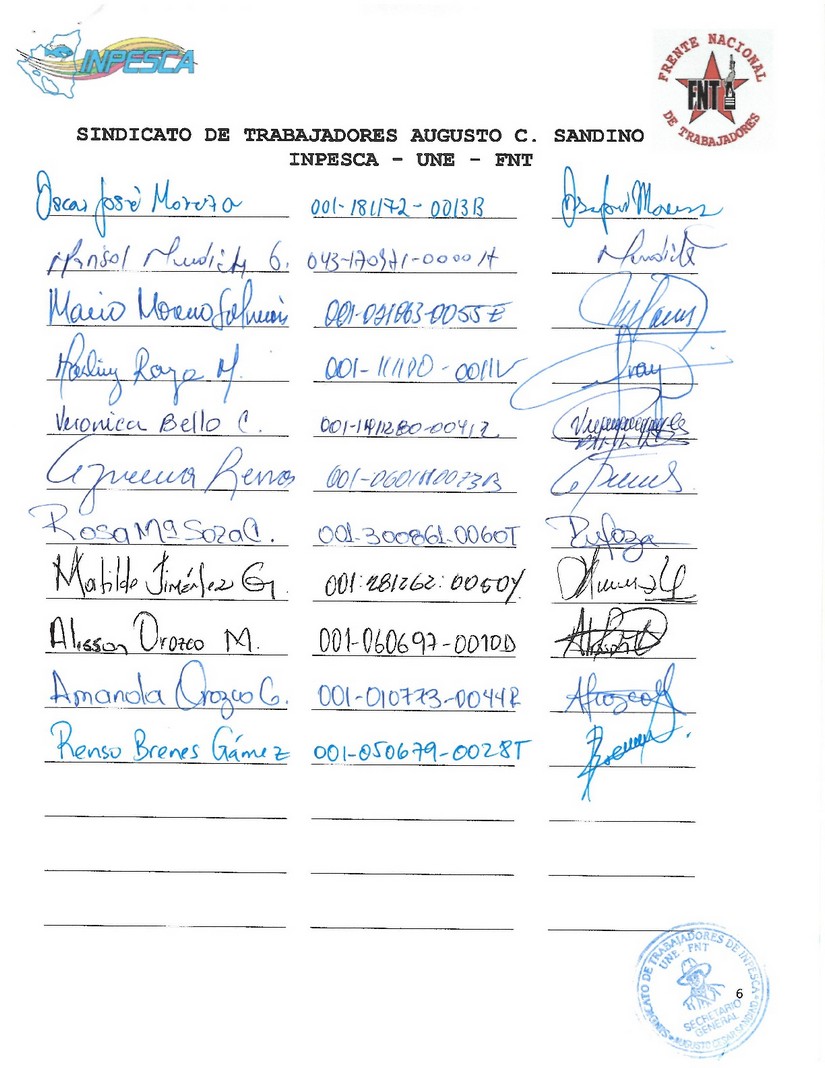 INPESCA
FRENTE NACIONAL
FNT
DE TRABAJADORES
SINDICATO DE TRABAJADORES AUGUSTO C. SANDINO
INPESCA - UNE - FNT
Oscar José Moreno 001-181172-0013B
Marisol Mendieta G. 043-170971-0000H Mendieta
Mario Moreno 001-021863-0055E
Raya M.
Veronica Bello C.
001-060111-0073B
Rosa Mª Soza C. 001-300861-0060T
Matilde Jiménez G. 001:281262:0050Y
Alisson Orozco M. 001-060697-0010D
Amanda Orozco G. 001-010773-0044R
Renso Brenes Gámez 001-050679-0028T
SINDICATO DE TRABAJADORES DE INPESCA
UNE - FNT
6
SECRETARIO
GENERAL